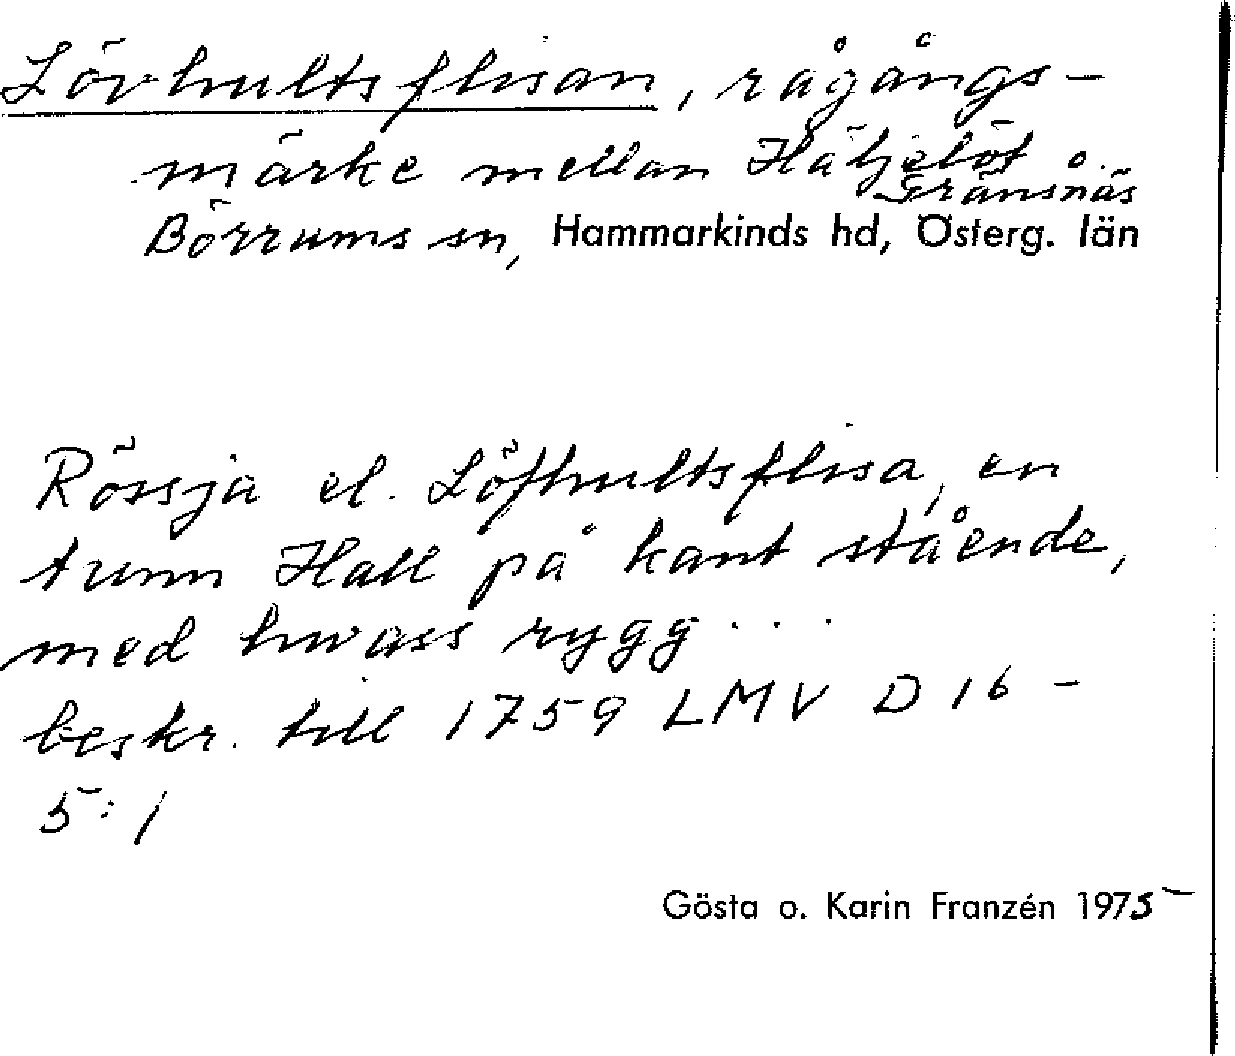 Lövhultsflisan, rågångs-
märke mellan Häljelöt o.
Gränsnäs
Börrums sn, Hammarkinds hd, Österg. län
Rössja el. Löfhultsflisa, en
tunn Hall på kant stående,
med hwass rygg ...
beskr. till 1759 LMV D 16 -
5:1
Gösta o. Karin Franzén 1975